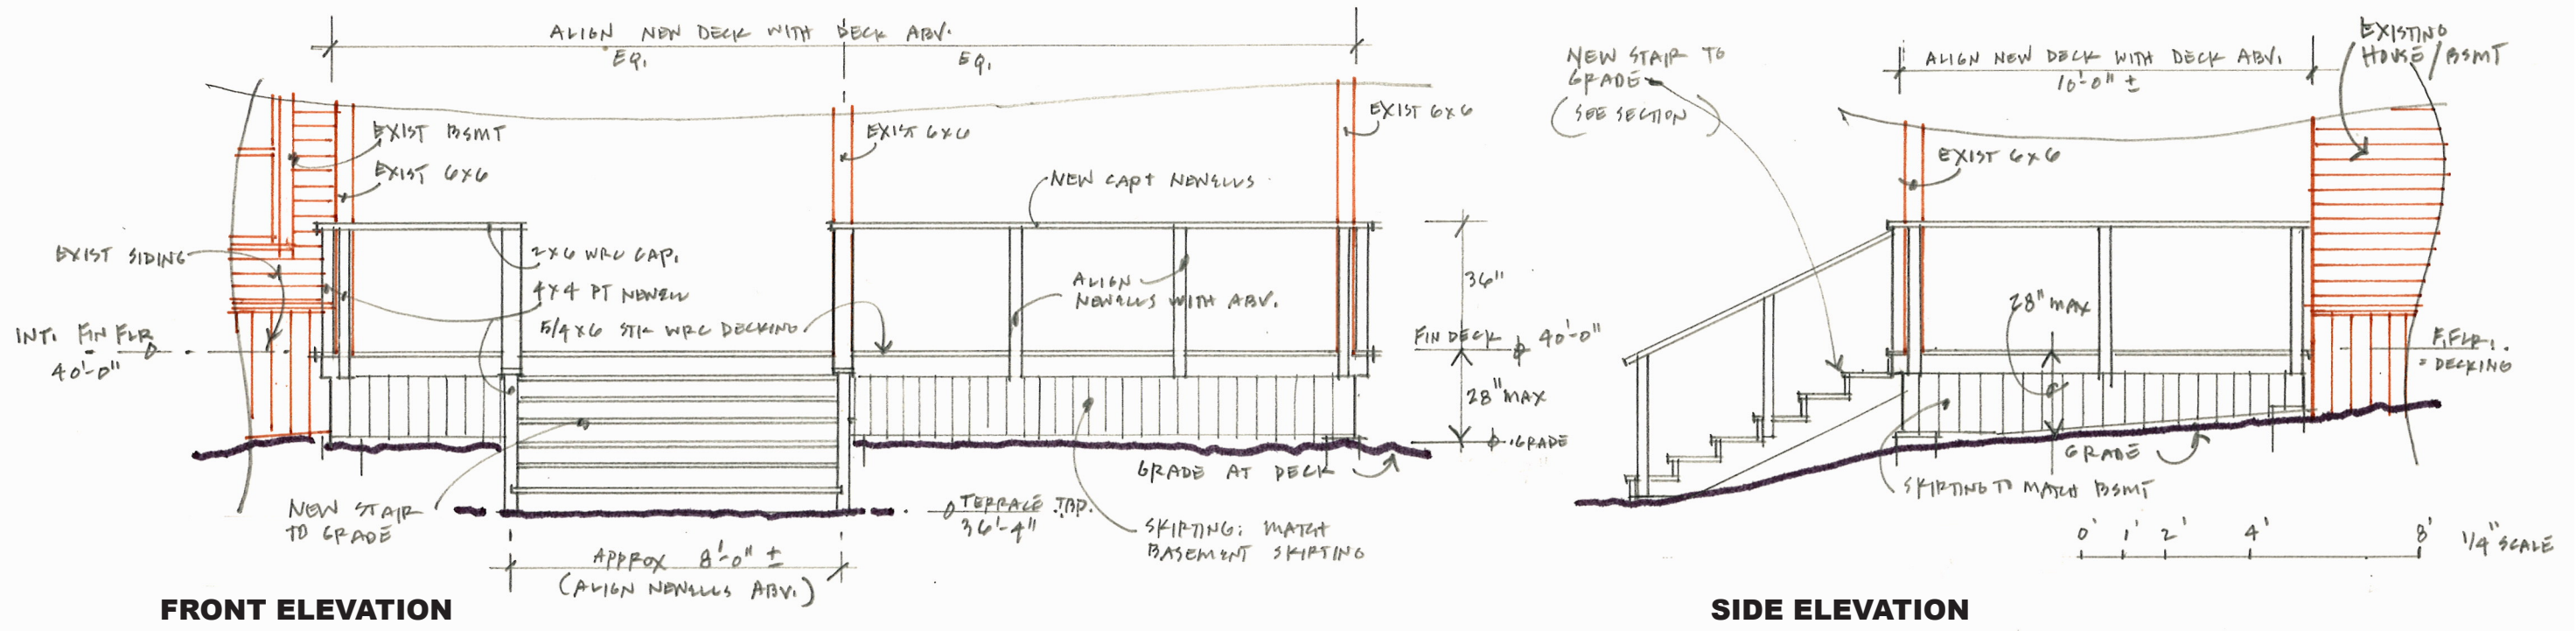 ALIGN NEW DECK WITH DECK ABV.
EQ.
EQ.
EXIST BSMT
EXIST 6x6
EXIST 6x6
EXIST 6x6
NEW CAP + NEWELLS
EXIST SIDING
2x6 WRC CAP.
4x4 PT NEWELL
5/4x6 STK WRC DECKING
ALIGN
NEWELLS WITH ABV.
INT. FIN FLR
40'-0"
36"
FIN DECK
40'-0"
28" MAX
GRADE
GRADE AT DECK
NEW STAIR
TO GRADE
TERRACE TBD.
36'-4"
SKIRTING: MATCH
BASEMENT SKIRTING
APPROX 8'-0" ±
(ALIGN NEWELLS ABV.)
FRONT ELEVATION
NEW STAIR TO
GRADE
(SEE SECTION)
ALIGN NEW DECK WITH DECK ABV.
10'-0" ±
EXISTING
HOUSE/BSMT
EXIST 6x6
28" MAX
F.FLR.
= DECKING
GRADE
SKIRTING TO MATCH BSMT
0' 1' 2' 4' 8' 1/4" SCALE
SIDE ELEVATION